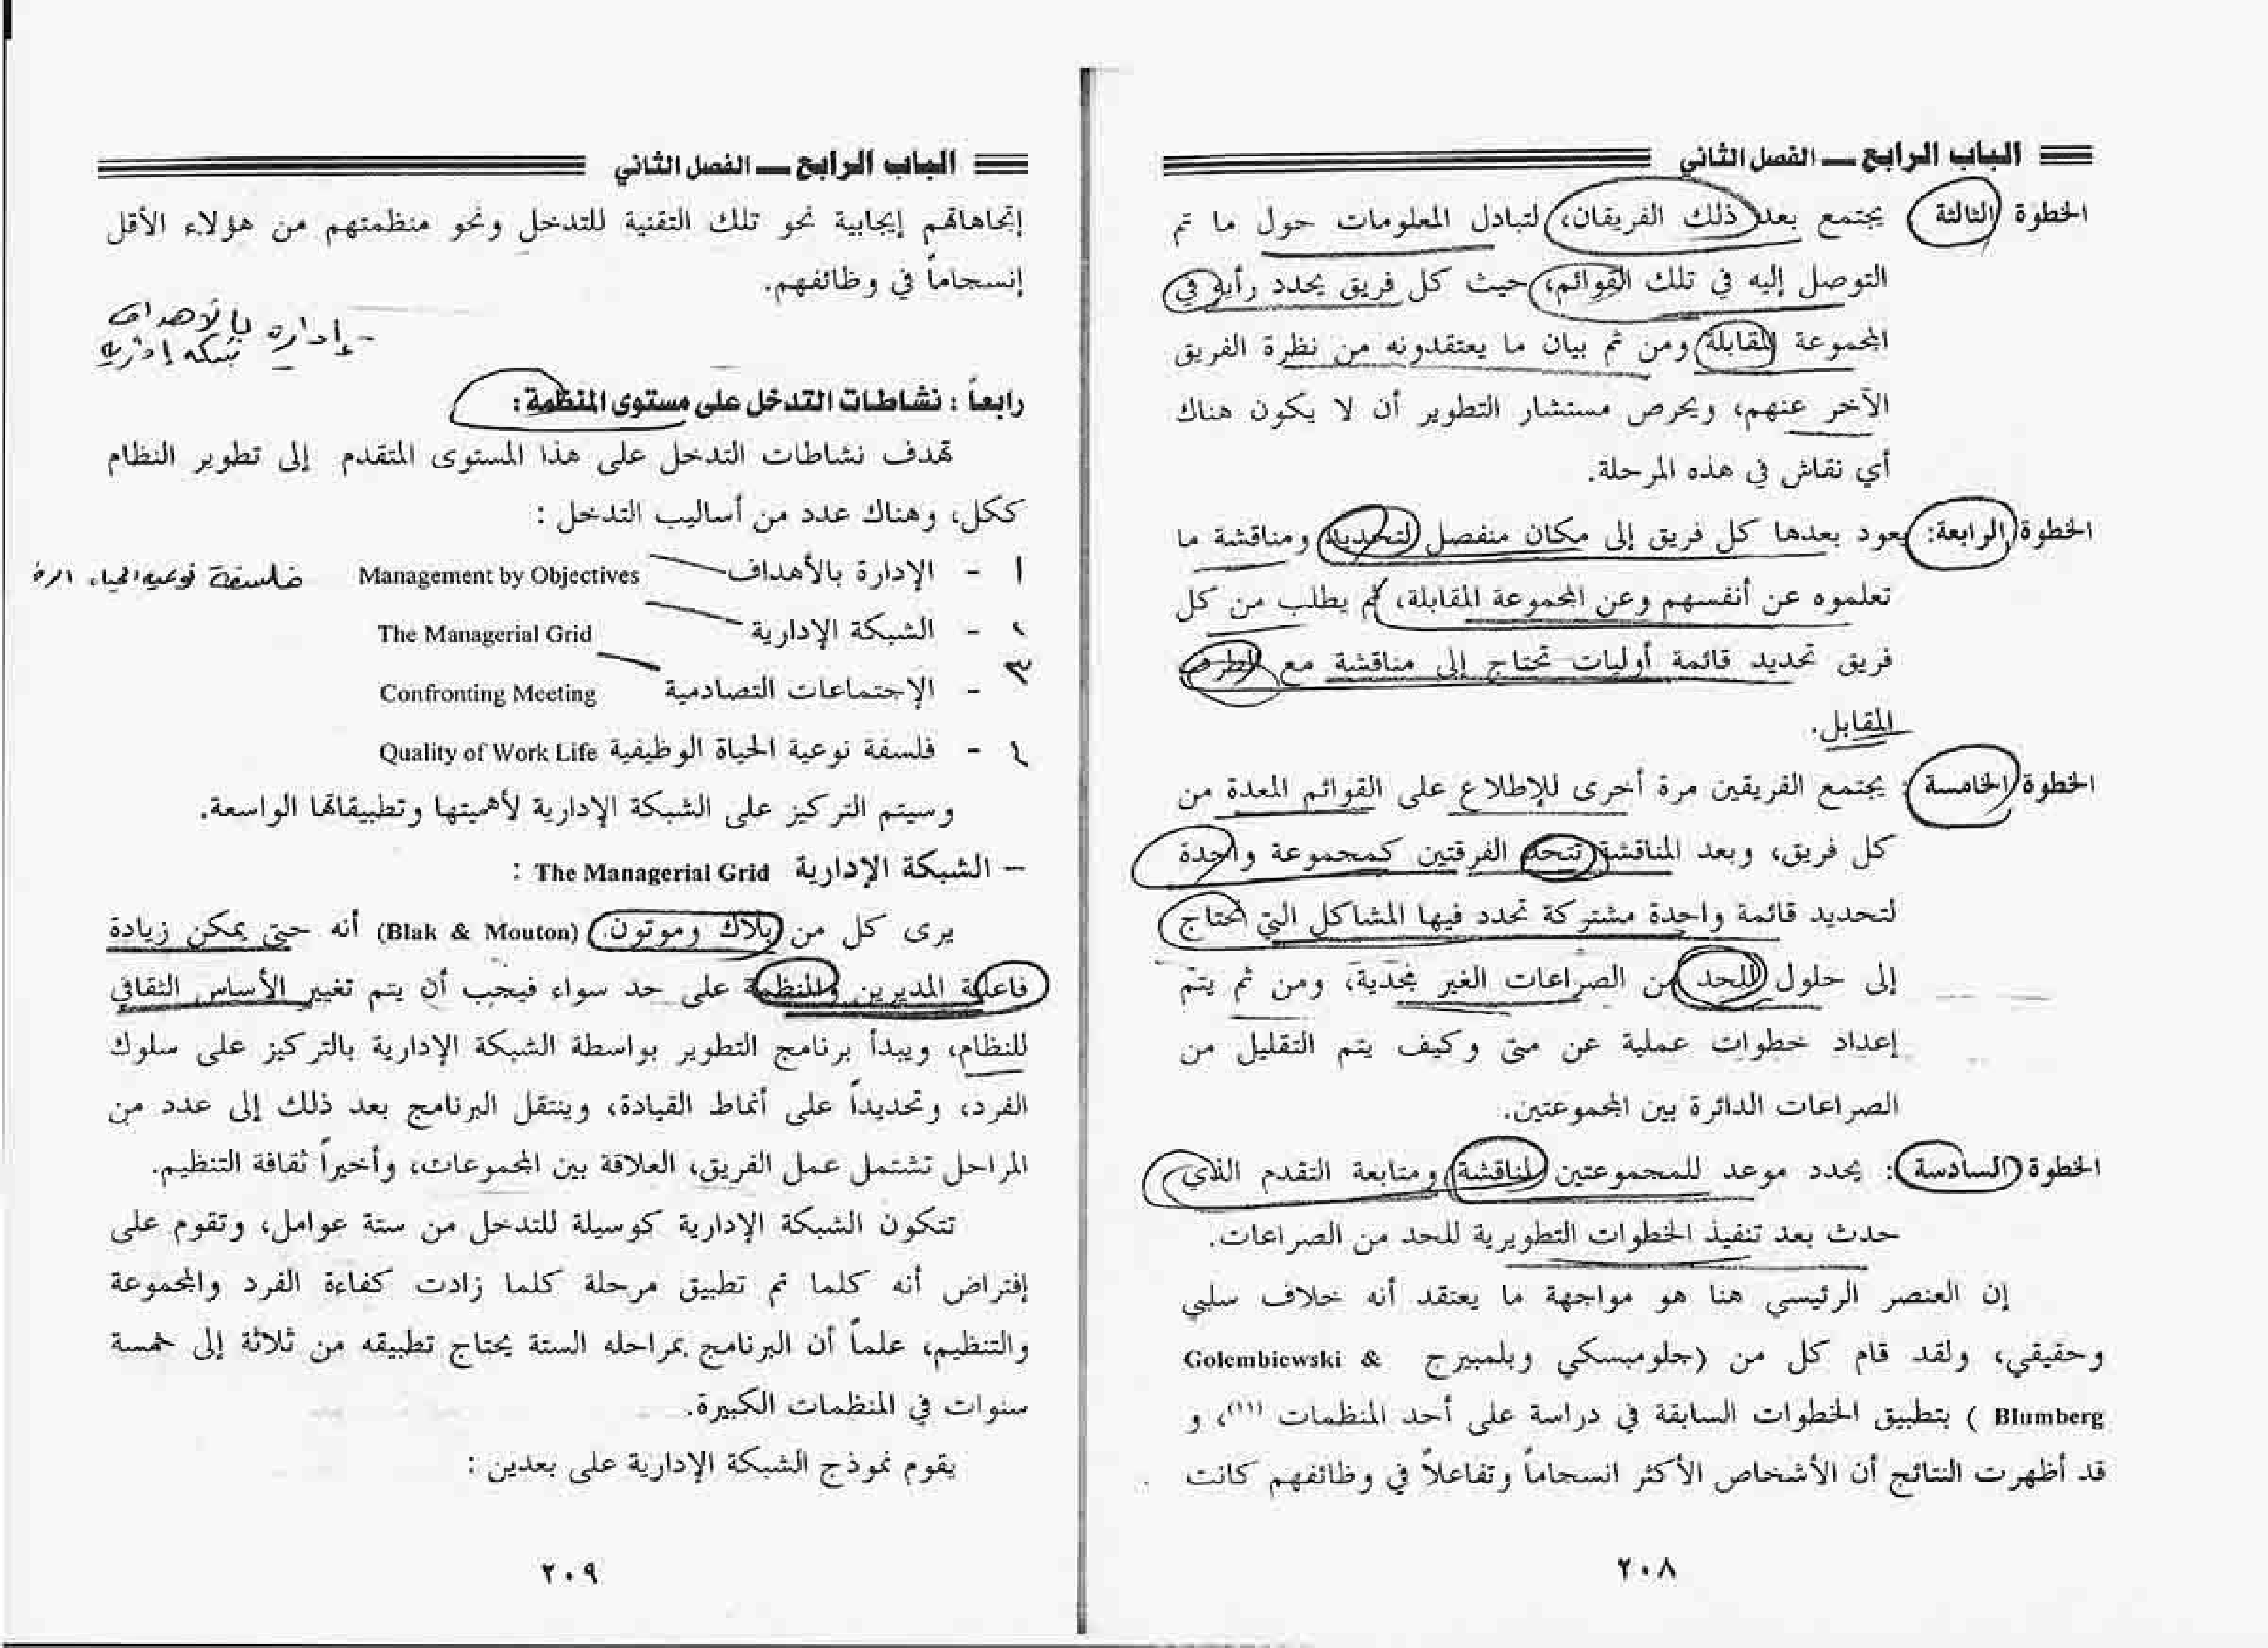 الباب الرابع ــ الفصل الثاني
الخطوة الثالثة يجتمع بعد ذلك الفريقان، لتبادل المعلومات حول ما تم
التوصل إليه في تلك القوائم، حيث كل فريق يحدد رأيه في
المجموعة المقابلة ومن ثم بيان ما يعتقدونه من نظرة الفريق
الآخر عنهم، ويحرص مستشار التطوير أن لا يكون هناك
أي نقاش في هذه المرحلة.
الخطوة الرابعة: يعود بعدها كل فريق إلى مكان منفصل لتحديد ومناقشة ما
تعلموه عن أنفسهم وعن المجموعة المقابلة، ثم يطلب من كل
فريق تحديد قائمة أوليات تحتاج إلى مناقشة مع الطرف
المقابل.
الخطوة الخامسة : يجتمع الفريقين مرة أخرى للإطلاع على القوائم المعدة من
كل فريق، وبعد المناقشة تتحد الفرقتين كمجموعة واحدة
لتحديد قائمة واحدة مشتركة تحدد فيها المشاكل التي تحتاج
إلى حلول للحد من الصراعات الغير مجدية، ومن ثم يتم
إعداد خطوات عملية عن متى وكيف يتم التقليل من
الصراعات الدائرة بين المجموعتين.
الخطوة السادسة : يحدد موعد للمجموعتين لمناقشة ومتابعة التقدم الذي
حدث بعد تنفيذ الخطوات التطويرية للحد من الصراعات.
إن العنصر الرئيسي هنا هو مواجهة ما يعتقد أنه خلاف سلبي
وحقيقي، ولقد قام كل من (جلومبسكي وبلمبيرج Golembiewski &
Blumberg ) بتطبيق الخطوات السابقة في دراسة على أحد المنظمات (١١)، و
قد أظهرت النتائج أن الأشخاص الأكثر انسجاماً وتفاعلاً في وظائفهم كانت
٢٠٨
الباب الرابع ــ الفصل الثاني
إتجاهاتهم إيجابية نحو تلك التقنية للتدخل ونحو منظمتهم من هؤلاء الأقل
إنسجاماً في وظائفهم.
- إدارة بالأهداف
شبكة إدارية
رابعاً : نشاطات التدخل على مستوى المنظمة :
تهدف نشاطات التدخل على هذا المستوى المتقدم إلى تطوير النظام
ككل، وهناك عدد من أساليب التدخل :
١ - الإدارة بالأهداف Management by Objectives فلسفة نوعية الحياة
٢ - الشبكة الإدارية The Managerial Grid
٣ - الإجتماعات التصادمية Confronting Meeting
٤ - فلسفة نوعية الحياة الوظيفية Quality of Work Life
وسيتم التركيز على الشبكة الإدارية لأهميتها وتطبيقاتها الواسعة.
– الشبكة الإدارية The Managerial Grid :
يرى كل من (بلاك وموتون) (Blak & Mouton) أنه حتى يمكن زيادة
فاعلية المديرين والمنظمة على حد سواء فيجب أن يتم تغيير الأساس الثقافي
للنظام، ويبدأ برنامج التطوير بواسطة الشبكة الإدارية بالتركيز على سلوك
الفرد، وتحديداً على أنماط القيادة، وينتقل البرنامج بعد ذلك إلى عدد من
المراحل تشتمل عمل الفريق، العلاقة بين المجموعات، وأخيراً ثقافة التنظيم.
تتكون الشبكة الإدارية كوسيلة للتدخل من ستة عوامل، وتقوم على
إفتراض أنه كلما تم تطبيق مرحلة كلما زادت كفاءة الفرد والمجموعة
والتنظيم، علماً أن البرنامج بمراحله الستة يحتاج تطبيقه من ثلاثة إلى خمسة
سنوات في المنظمات الكبيرة.
يقوم نموذج الشبكة الإدارية على بعدين :
٢٠٩